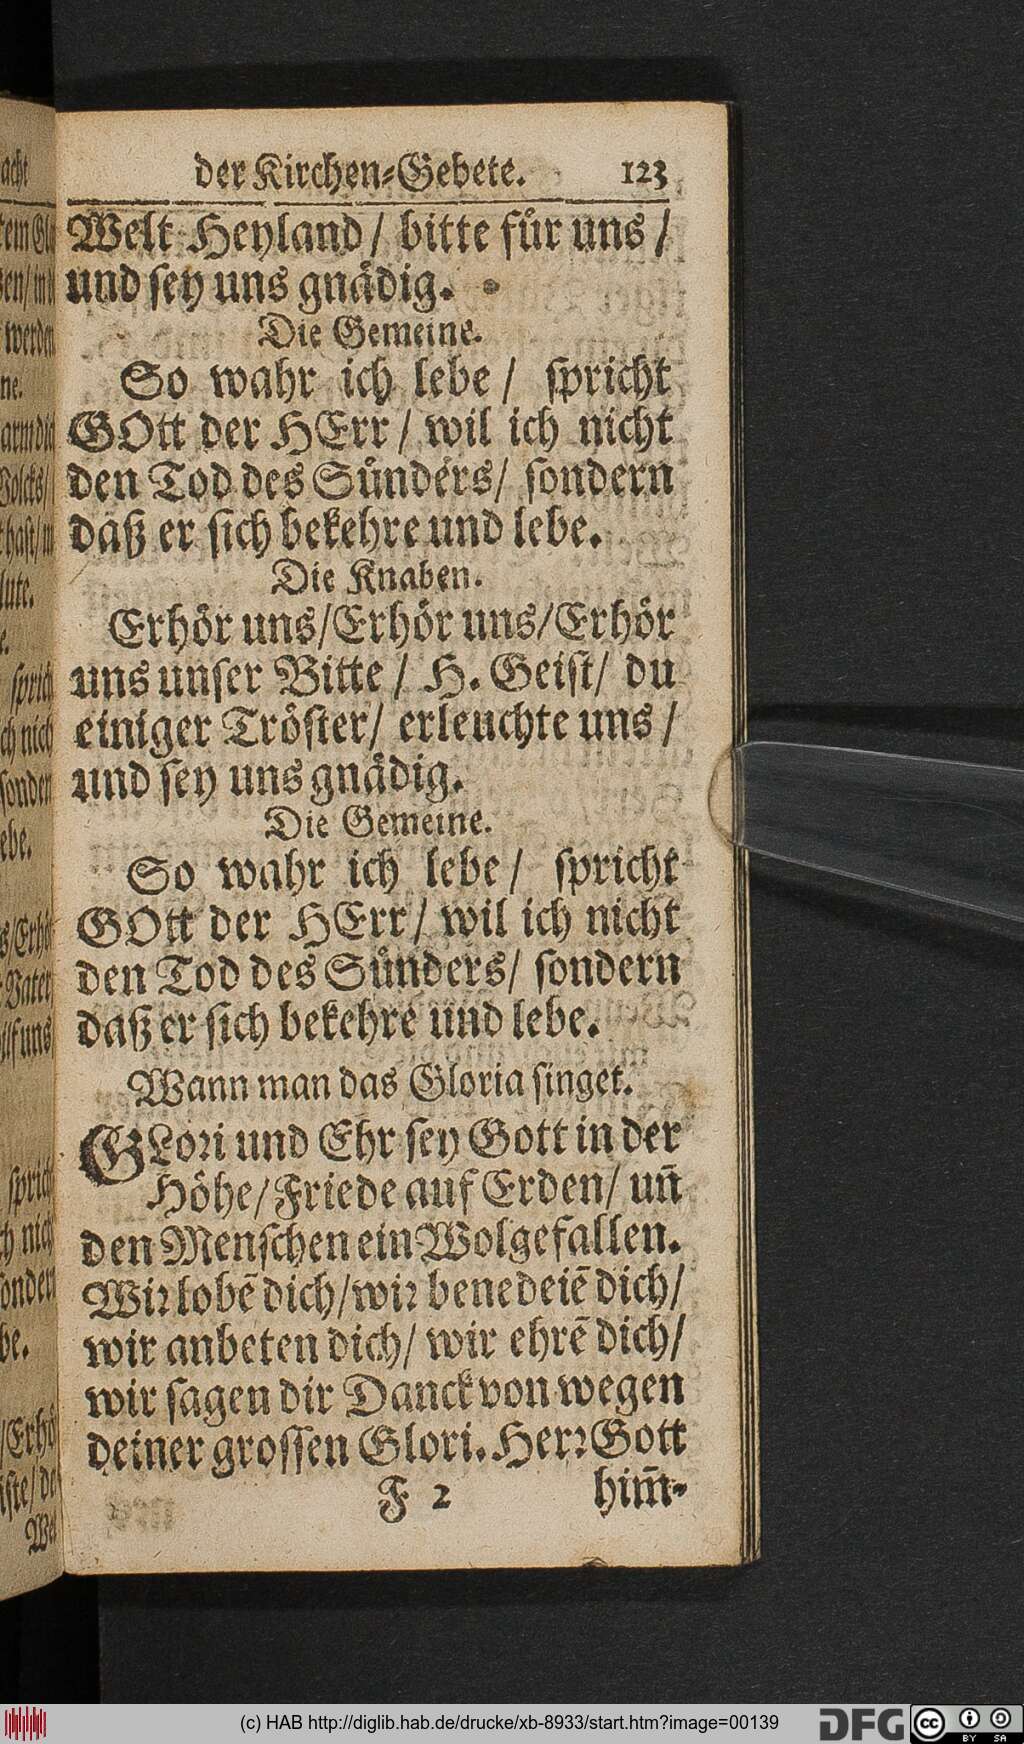 der Kirchen-Gebete. 123
Welt Heyland/ bitte für uns/
und sey uns gnädig.
Die Gemeine.
So wahr ich lebe/ spricht
GOtt der HErr/ wil ich nicht
den Tod des Sünders/ sondern
daß er sich bekehre und lebe.
Die Knaben.
Erhör uns/Erhör uns/Erhör
uns unser Bitte/ H. Geist/ du
einiger Tröster/ erleuchte uns/
und sey uns gnädig.
Die Gemeine.
So wahr ich lebe/ spricht
GOtt der HErr/ wil ich nicht
den Tod des Sünders/ sondern
daß er sich bekehre und lebe.
Wann man das Gloria singet.
GLori und Ehr sey Gott in der
Höhe/Friede auf Erden/ un̄
den Menschen ein Wolgefallen.
Wir lobē dich/wir benedeiē dich/
wir anbeten dich/ wir ehrē dich/
wir sagen dir Danck von wegen
deiner grossen Glori. Herr Gott
F 2 him̄-
(c) HAB http://diglib.hab.de/drucke/xb-8933/start.htm?image=00139
DFG cc BY SA